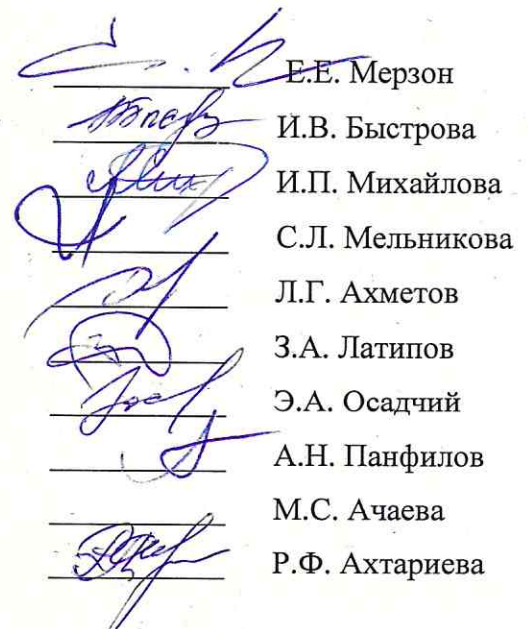 Е.Е. Мерзон
И.В. Быстрова
И.П. Михайлова
С.Л. Мельникова
Л.Г. Ахметов
З.А. Латипов
Э.А. Осадчий
А.Н. Панфилов
М.С. Ачаева
Р.Ф. Ахтариева